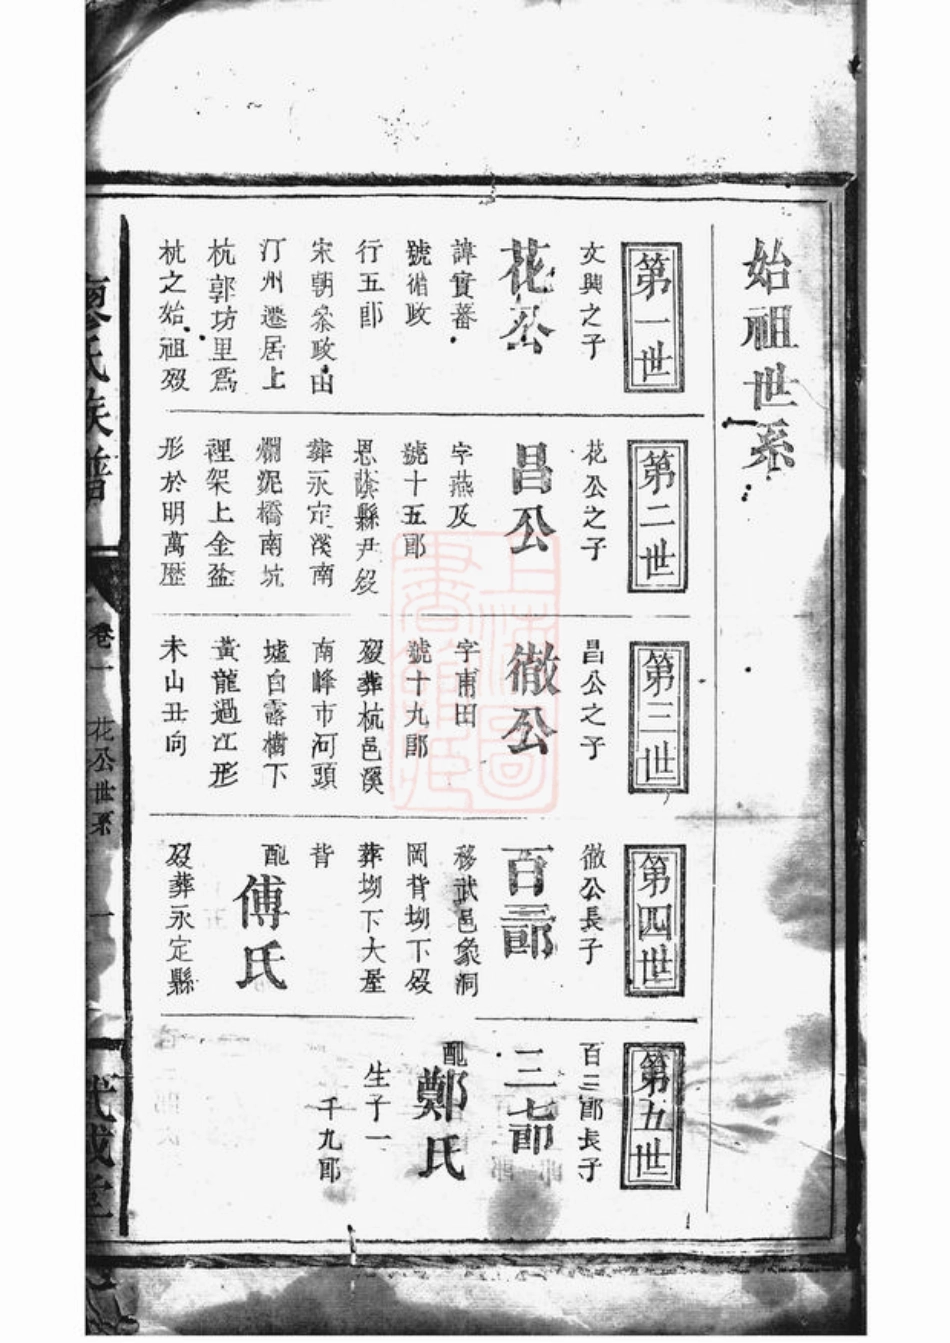 始祖世系
第一世
文興之子
花公
諱實蕃
號循政
行五郎
宋朝叅政由
汀州遷居上
杭郭坊里爲
杭之始祖殁
第二世
花公之子
昌公
字燕及
號十五郎
恩蔭縣尹殁
葬永定溪南
爛泥橋南坑
裡架上金盆
形於明萬歷
第三世
昌公之子
徹公
字甫田
號十九郎
殁葬杭邑溪
南峰市河頭
墟白露樹下
黃龍過江形
未山丑向
第四世
徹公長子
百三郎
移武邑象洞
岡背坳下殁
葬坳下大屋
背
配傅氏
殁葬永定縣
第五世
百三郎長子
二七郎
配鄭氏
生子一
千九郎
廖氏族譜
卷一
花公世系
一
武威堂
上海圖書館藏